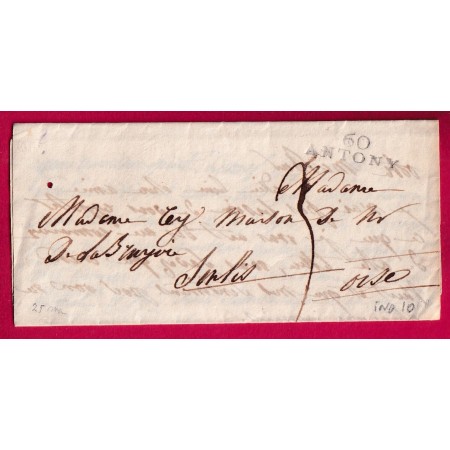 60
ANTONY
Madame
Madame Rey Maison De Mr
De La Bruyère
Senlis
oise
IND 10